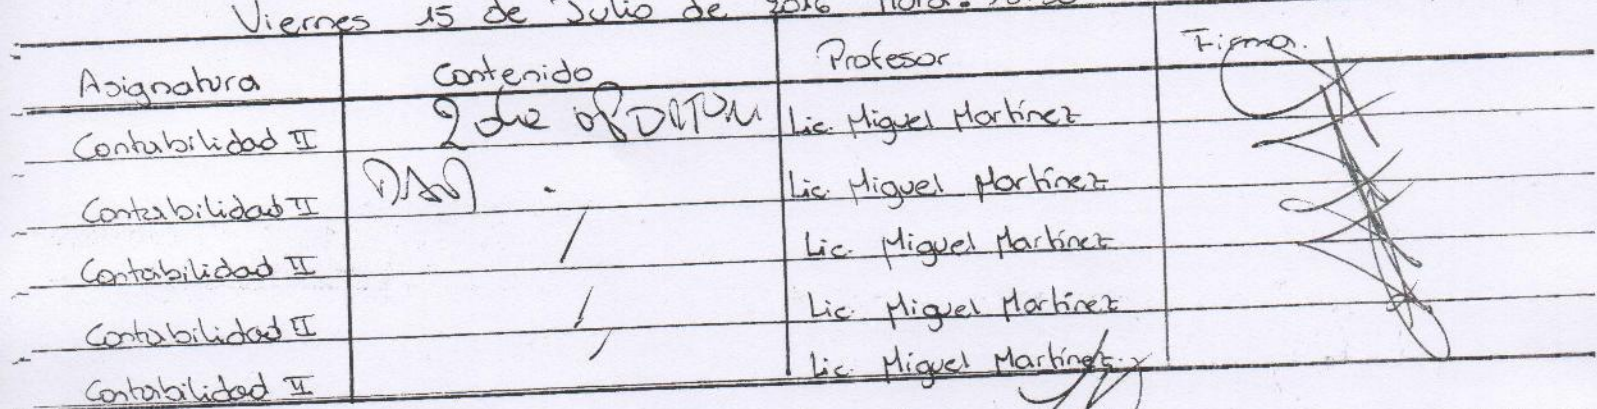 Viernes 15 de Julio de 2016 Hora:
Asignatura Contenido Profesor Firma.
Contabilidad II 2 de Lic. Miguel Martínez
Contabilidad II Lic. Miguel Martínez
Contabilidad II / Lic. Miguel Martínez
Contabilidad II / Lic. Miguel Martínez
Contabilidad II / Lic. Miguel Martínez